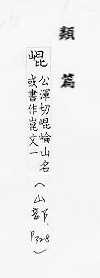 類篇
崐
公渾切崐崘山名
或書作崑文一
(山部, P328)